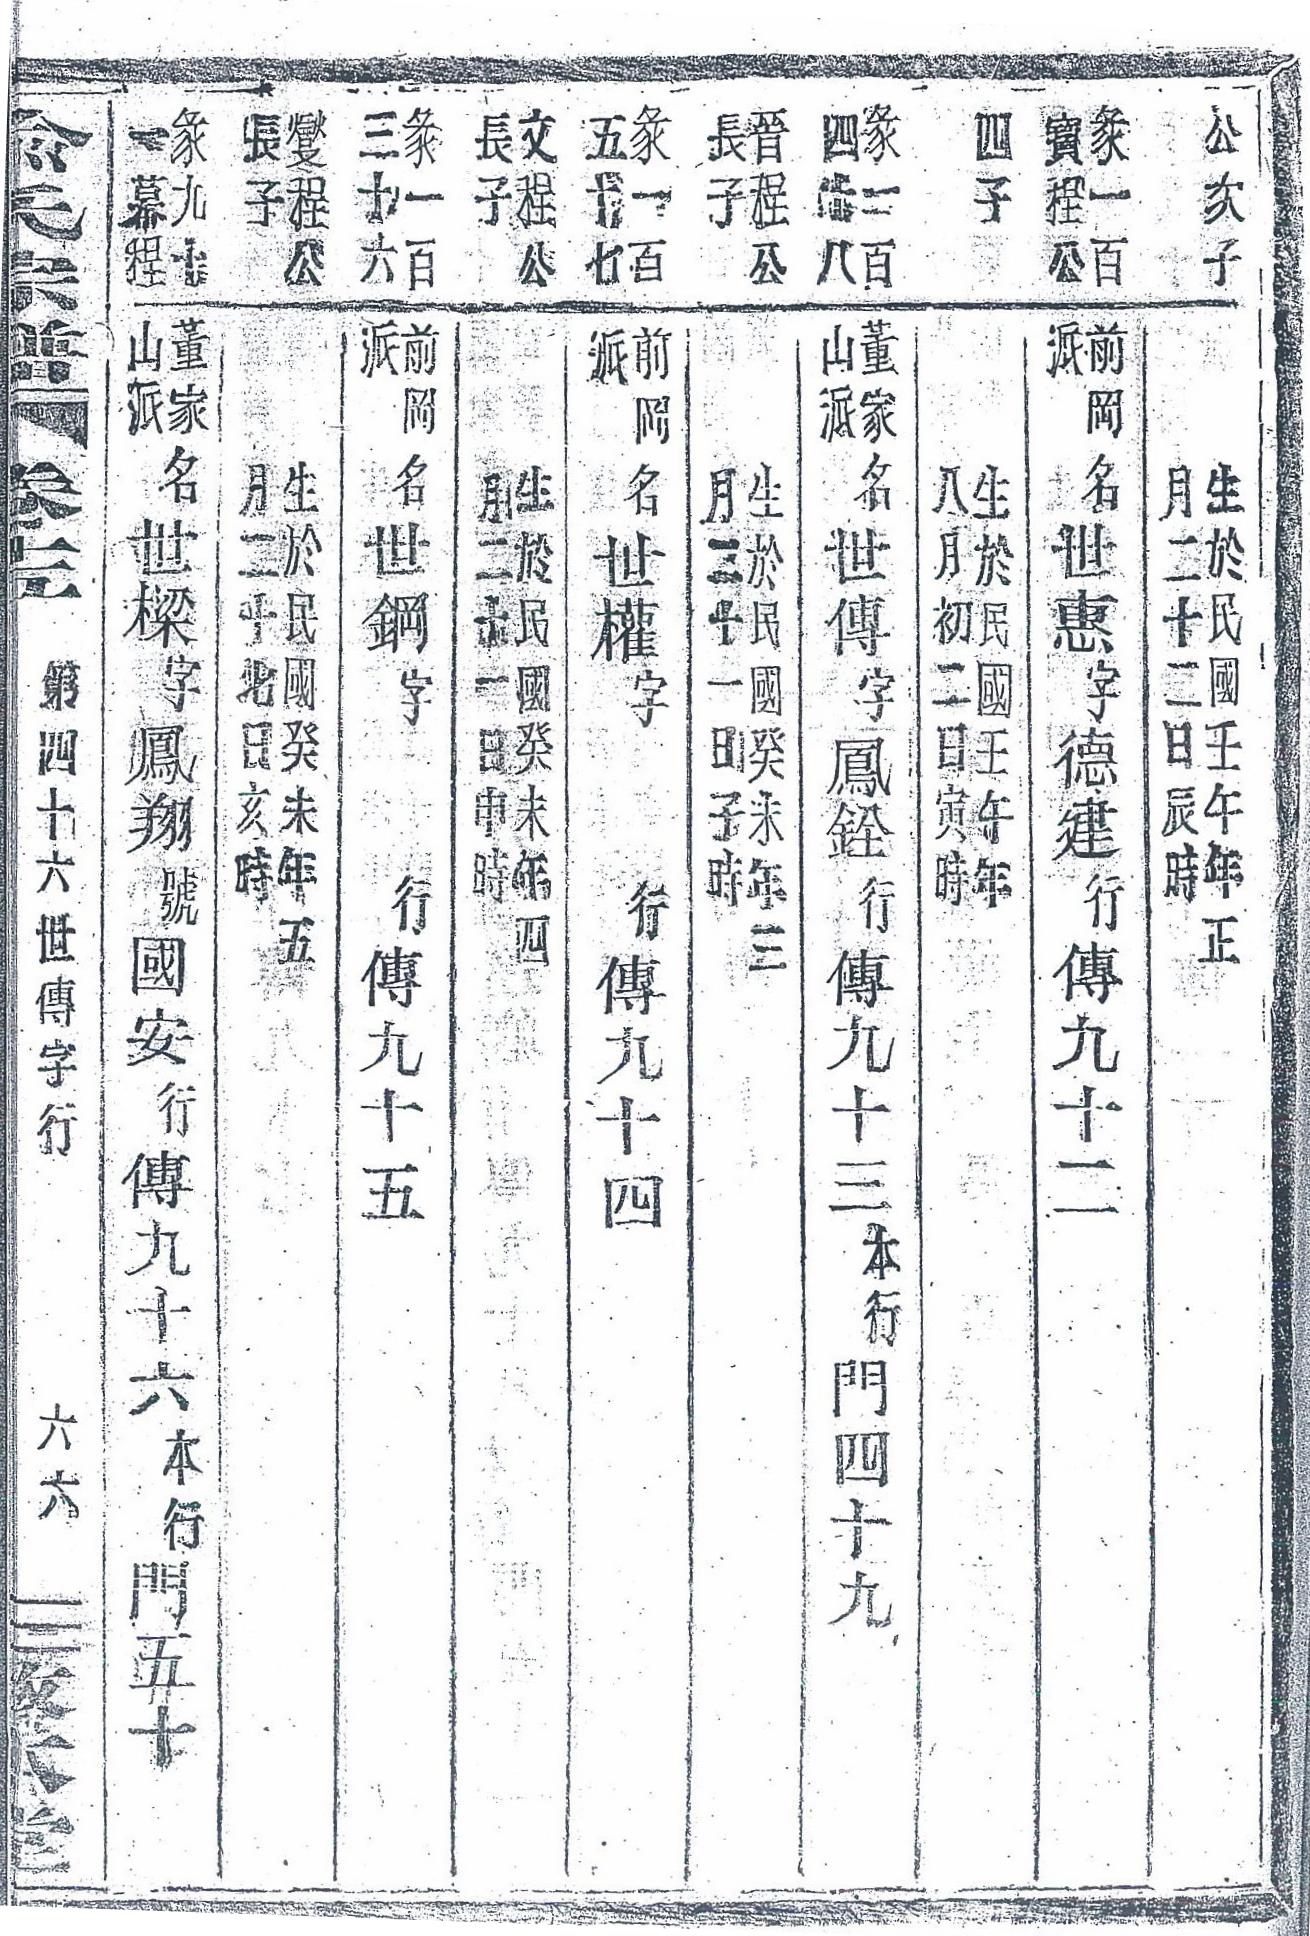 公次子
生於民國壬午年正
月二十二日辰時
彖一百
寶程公
前岡
派
名世惠字德建行傳九十二
四子
生於民國壬午年
八月初二日寅時
彖一百
四 八
董家
山派
名世傳字鳳銓行傳九十三本行門四十九
晉程公
長子
生於民國癸未年三
月三十一日子時
彖一百
五十七
前岡
派
名世權字 行傳九十四
文程公
長子
生於民國癸未年四
月二十一日申時
彖一百
三十六
前岡
派
名世鋼字 行傳九十五
燮程公
長子
生於民國癸未年五
月二十 日亥時
彖九十
一幕程
董家
山派
名世樑字鳳翔號國安行傳九十六本行門五十
氏宗譜 卷三 第四十六世傳字行 六六